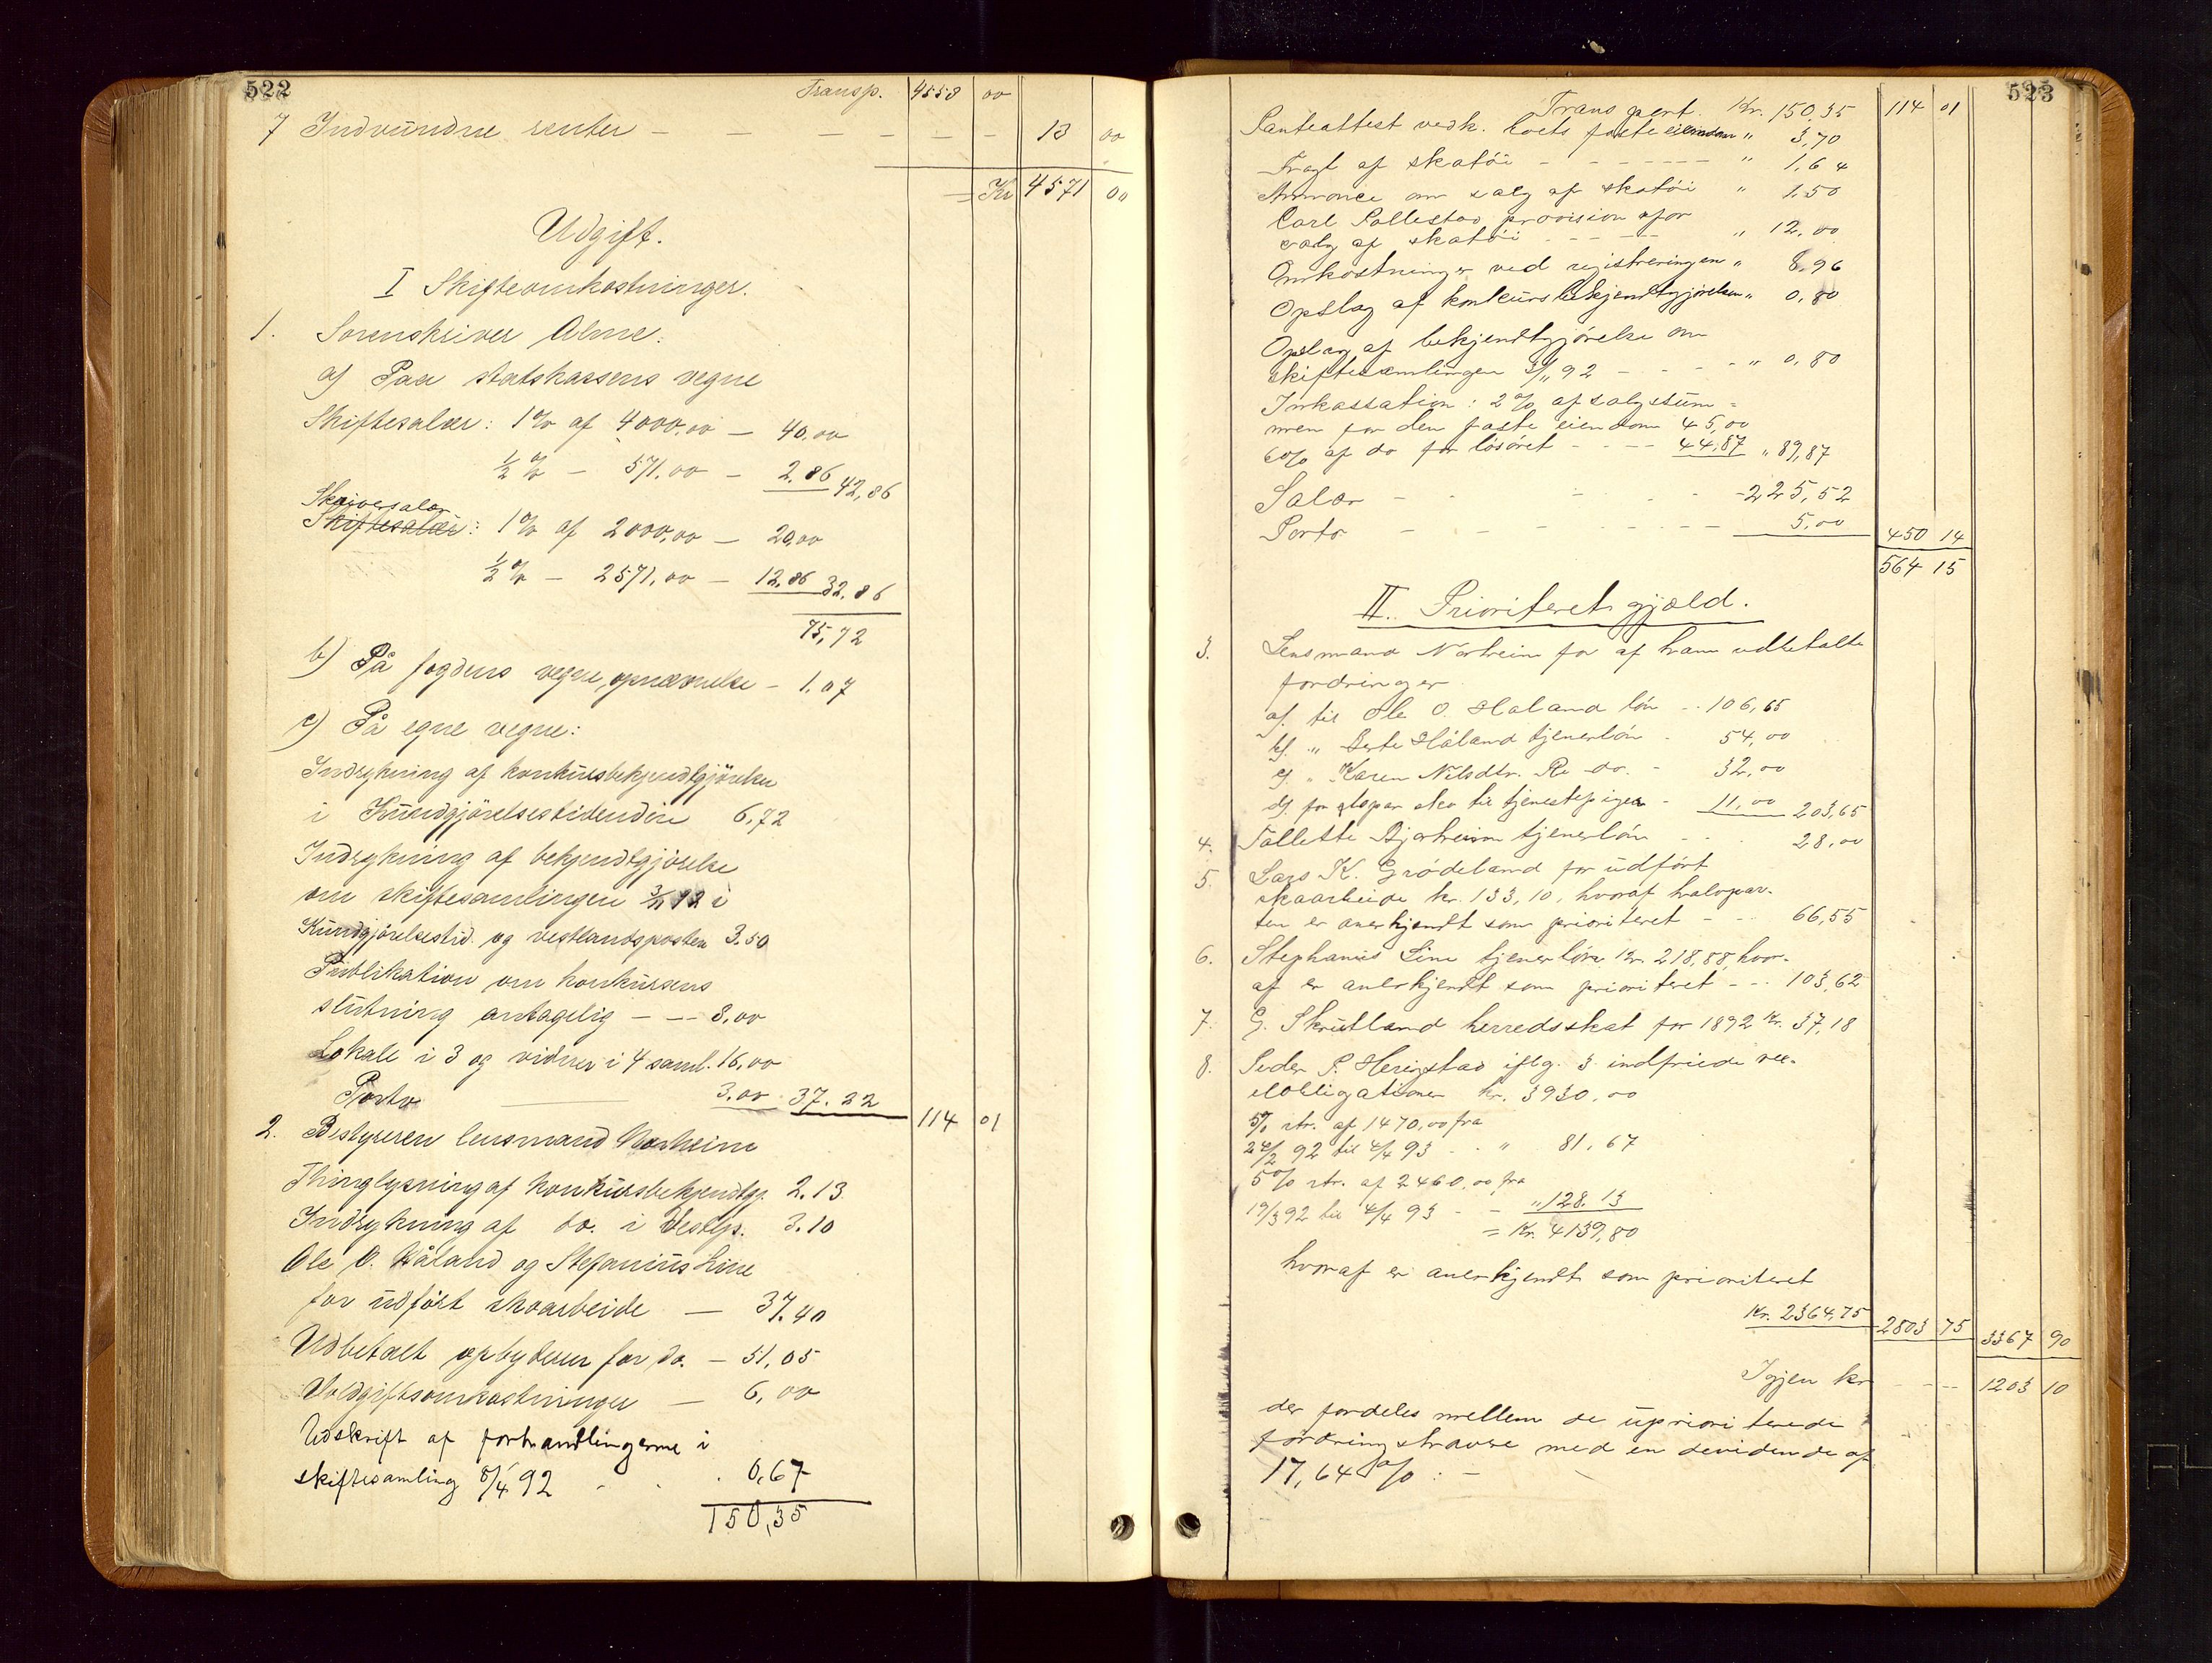 522
Transp. 4558 00
7 Indvundne renter — — — — — 13 00
= Kr 4571 00
Udgift.
I Skifteomkostninger.
1. Sorenskriver Alme.
a) Paa statskassens vegne
Skiftesalær: 1% af 4000,00 — 40,00
½ % — 571,00 — 2,86 42,86
Skriversalær
Skiftesalær: 1% af 2000,00 — 20,00
½ % — 2571,00 — 12,86 32,86
75,72
b) På fogdens vegne, opnævnelse — 1.07
c) På egne vegne:
Indrykning af konkursbekjendtgjörelse
i Kundgjörelsestidenden 6,72
Indrykning af bekjendtgjörelse
om skiftesamlingen 3/11 92 i
Kundgjörelsestid. og vestlandsposten 3.50
Publikation om konkursens
slutning antagelig — — 8,00
Lokale i 3 og vidner i 4 saml. 16,00
Porto 3.00 37.22 114 01
2. Bestyreren lensmand Norheim
Thinglysning af konkursbekjendtgj. 2.13
Indrykning af do. i Vestlp. 3.10
Ole O. Håland og Stefanius Line
for udført skoarbeide — 37.40
Udbetalt opbyderen for do. — 51,05
Voldgiftsomkostninger — 6,00
Udskrift af forhandlingerne i
skiftesamling 8/4 92 - - 0,67
150,35
523
Transport Kr. 150,35 114 01
Panteattest vedk. boets faste eiendom " 3,70
Fragt af skotöi - - - - " 1,64
Annonce om salg af skotöi " 1,50
Carl Pallestad provision afor
salg af skotöi - - - - " 12,00
Omkostninger ved registreringen " 8,96
Opslag af konkursbekjendtgjörelsen " 0,80
Opslag af bekjendtgjörelse om
skiftesamlingen 3/11 92 - - - - " 0,80
Inkassation: 2% af salgssum=
men for den faste eiendom 45,00
6% af do for lösöret - - - - 44,87 " 89,87
Salær - - - - - 225,52
Porto - - - - - 5,00 450 14
564 15
II. Prioriteret gjæld.
3. Lensmand Norheim for af ham udbetalte
fordringer
a). til Ole O. Haland lön - - 106,65
b). " Berte Håland tjenerlön - 54,00
c). " Karen Nilsdtr. Re do. - 32,00
d). for et par sko til tjenestepigen - 11,00 203,65
4. Tollette Bjerheim tjenerlön - - 28,00
5. Lars K. Grödeland for udfört
skoarbeide kr. 133,10, hvoraf halvpar-
ten er anerkjendt som prioriteret - - 66,55
6. Stephanius Line tjenerlön Kr. 218,88, hvor-
af er anerkjendt som prioriteret - - - 103,62
7. G. Skrutland herredsskat for 1892 Kr. 37,18
8. Peder P. Herigstad iflg. 3 indfriede vex-
elobligationer Kr. 3930,00
5% rtr. af 1470,00 fra
24/2 92 til 4/4 93 - - " 81,67
5% rtr. af 2460,00 fra
19/3 92 til 4/4 93 - - " 128.13
= Kr. 4139,80
hvoraf er anerkjendt som prioriteret
Kr. 2364,75 2803 75 3367 90
Igjen kr - - - 1203 10
der fordeles mellem de upriori terede
fordringshavere med en devidende af
17,64 % : -